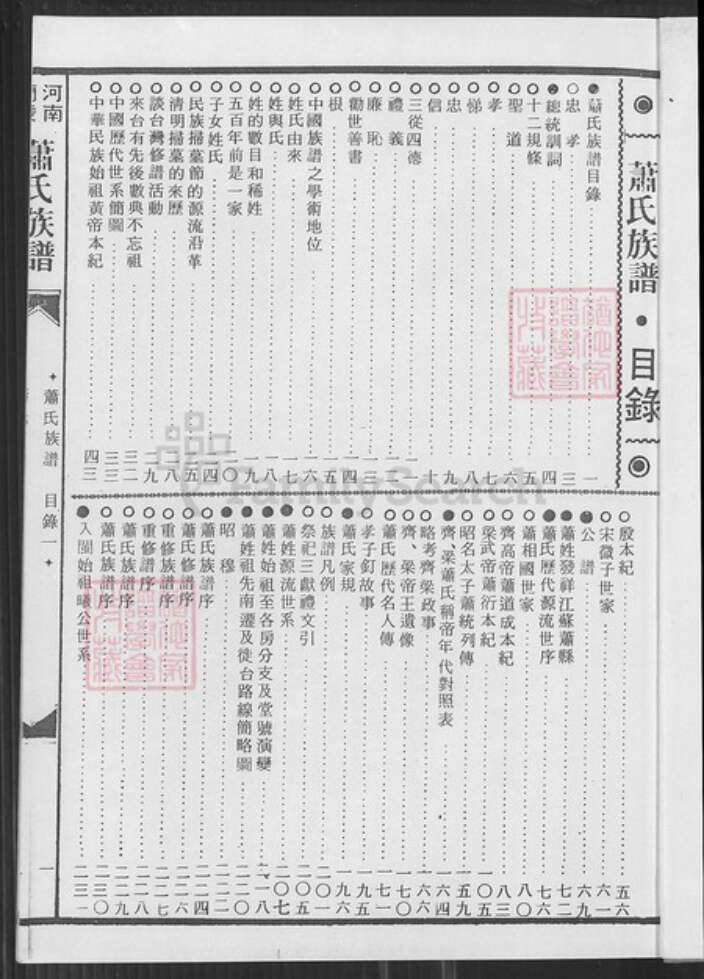 蕭氏族譜・目錄
●蕭氏族譜目錄……一
○忠孝……三
●總統訓詞……四
○十二規條……五
○聖道……六
○孝……七
○悌……八
○忠……九
○信……十
○三從四德……一一
○禮義……一二
○廉恥……一三
○勸世善書……一四
○根……一五
○中國族譜之學術地位……一六
○姓氏由來……一七
○姓與氏……一八
○姓的數目和稀姓……一九
○五百年前是一家……二〇
○子女姓氏……二四
○民族掃墓節的源流沿革……二五
○清明掃墓的來歷……二八
○談台灣修譜活動……二九
○來台有先後數典不忘祖……三二
○中國歷代世系簡圖……三三
○中華民族始祖黃帝本紀……四三
○殷本紀……五六
○宋微子世家……六一
●公譜……六九
●蕭姓發祥江蘇蕭縣……七二
●蕭氏歷代源流世序……七六
○蕭相國世家……八〇
○齊高帝蕭道成本紀……八三
○梁武帝蕭衍本紀……一〇五
○昭名太子蕭統列傳……一五九
●齊、梁蕭氏稱帝年代對照表……一六四
○略考齊梁政事……一六六
○齊、梁帝王遺像……一七〇
○蕭氏歷代名人傳……一七一
○孝子釘故事……一九五
●蕭氏家規……一九六
○族譜凡例……二〇一
○祭祀三獻禮文引……二〇五
●蕭姓源流世系……二〇七
●蕭姓始祖至各房分支及堂號演變……二一八
●蕭姓祖先南遷及徙台路線簡略圖……二二〇
●昭穆……二二二
●蕭氏族譜序……二二四
○蕭氏修譜序……二二六
○重修族譜序……二二七
○重修譜序……二二八
○蕭氏族譜序……二二九
○蕭氏族譜序……二三〇
●入閩始祖曦公世系……二三一
河南
蕭氏族譜
蕭氏族譜 目錄一
一
FamilySearch